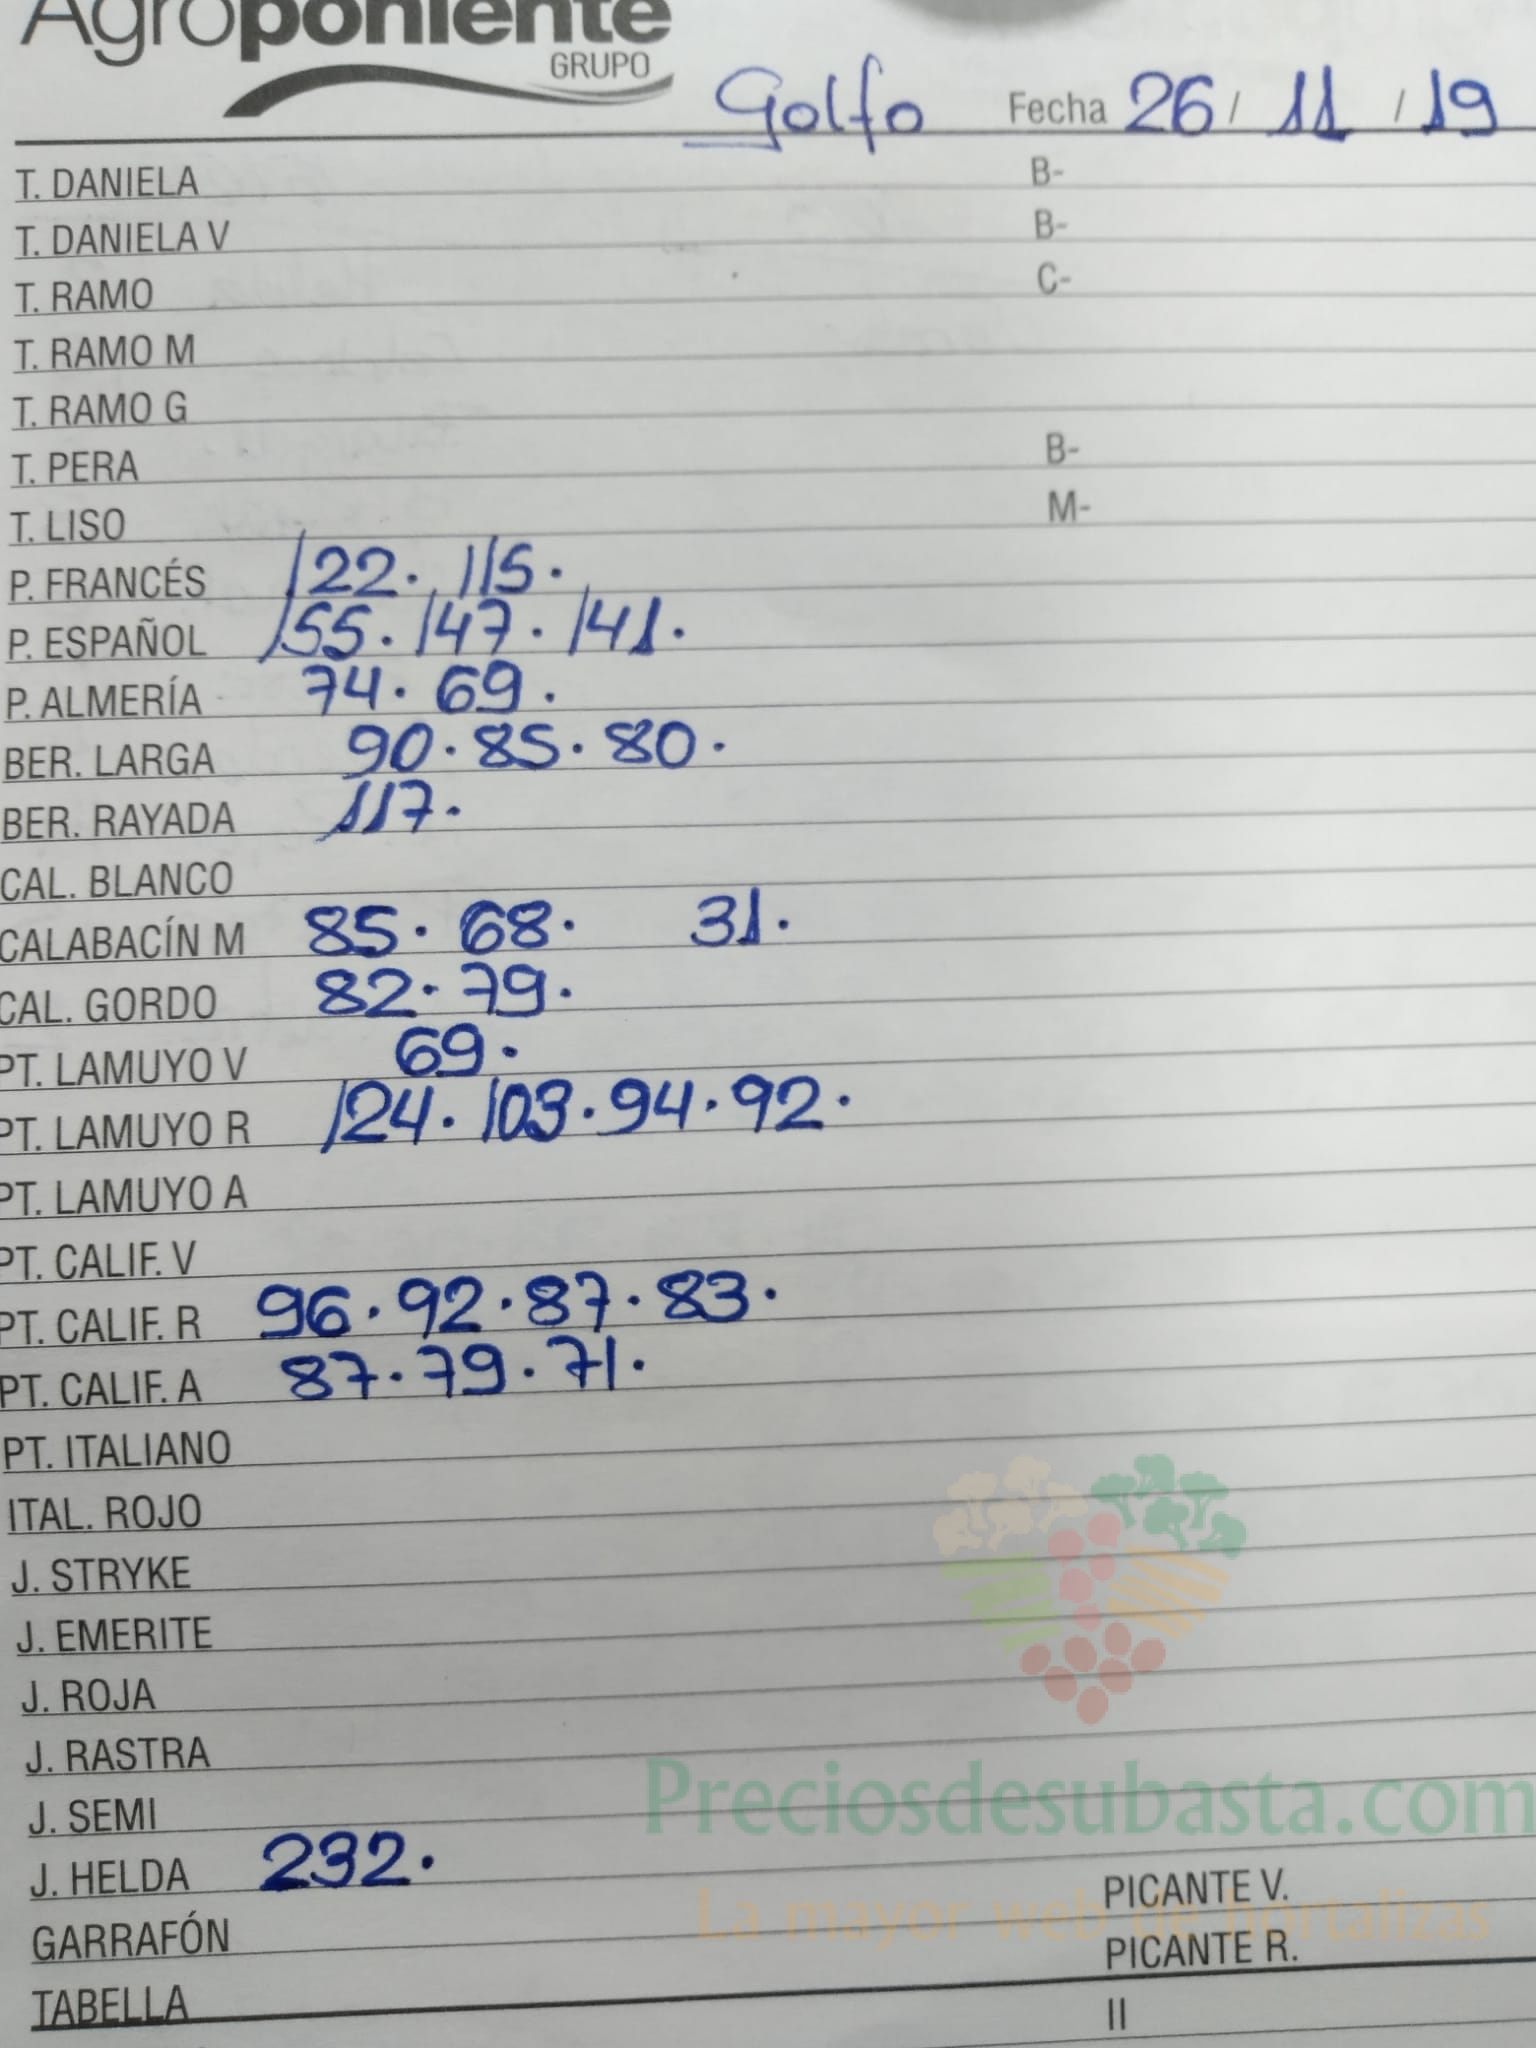 Agroponiente
GRUPO
Golfo Fecha 26 / 11 / 19
T. DANIELA B-
T. DANIELA V B-
T. RAMO C-
T. RAMO M
T. RAMO G
T. PERA B-
T. LISO M-
P. FRANCÉS 122. 115.
P. ESPAÑOL 155. 147. 141.
P. ALMERÍA 74. 69.
BER. LARGA 90. 85. 80.
BER. RAYADA 117.
CAL. BLANCO
CALABACÍN M 85. 68. 31.
CAL. GORDO 82. 79.
PT. LAMUYO V 69.
PT. LAMUYO R 124. 103. 94. 92.
PT. LAMUYO A
PT. CALIF. V
PT. CALIF. R 96. 92. 87. 83.
PT. CALIF. A 87. 79. 71.
PT. ITALIANO
ITAL. ROJO
J. STRYKE
J. EMERITE
J. ROJA
J. RASTRA
Preciosdesubasta.com
J. SEMI
J. HELDA 232. PICANTE V.
La mayor web de hortalizas
GARRAFÓN PICANTE R.
TABELLA II